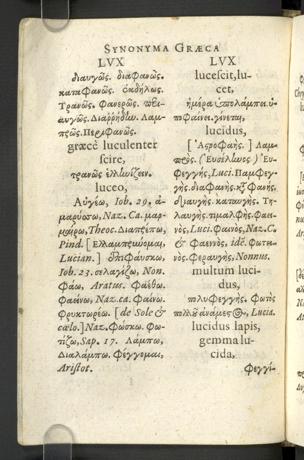 SYNONYMA GRÆCA
LVX
διαυγῶς. διαφανῶς.
καταφανῶς. ἐκδήλως.
Τρανῶς. Φανερῶς.
αυγῶς. Διαρρήδην. Λαμ-
πρῶς. Περιφανῶς.
græcè luculenter
scire,
τρανῶς ἑλληνίζειν.
luceo,
Αὐγέω, Iob. 29. ἀ-
μαρύσσω, Naz. Ca. μαρ-
μαίρω, Theoc. Διαπρέπω,
Pind. [Ἐλλαμπρύνομαι,
Lucian.] ἐπιφαύσκω,
Iob. 23. σελαγίζω, Non.
Φάω, Aratus. Φαέθω.
Φαείνω, Naz. ca. Φαίνω.
Φρυκτωρέω. [de Sole &
cælo.] Naz. Φώσκω. Φω-
τίζω, Sap. 17. Λάμπω,
Διαλάμπω. Φέγγομαι,
Aristot.
LVX
lucescit, lu-
cet,
ἡμέρα ὑπολάμπει. ὑ-
ποφαίνει. γίνεται,
lucidus,
[Ἀεροφαής.] Λαμ-
πρός. (Εὐσέληνος) Εὐ-
φεγγής, Luci. Παμφεγ-
γής. διαφανής. καὶ φανής.
διαυγής. καταυγής. Τη-
λαυγής. Φαει-
νός, Luci. Φανός, Naz. C.
& Φαεινός, idē. Φωτει-
νός. Φεραυγής, Nonnus.
multum luci-
dus,
πολυφεγγής. φωτὸς
πολλοῦ ἀνάμεστος, Lucia.
lucidus lapis,
gemma lu-
cida,
φεγγί-